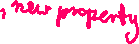 , new property